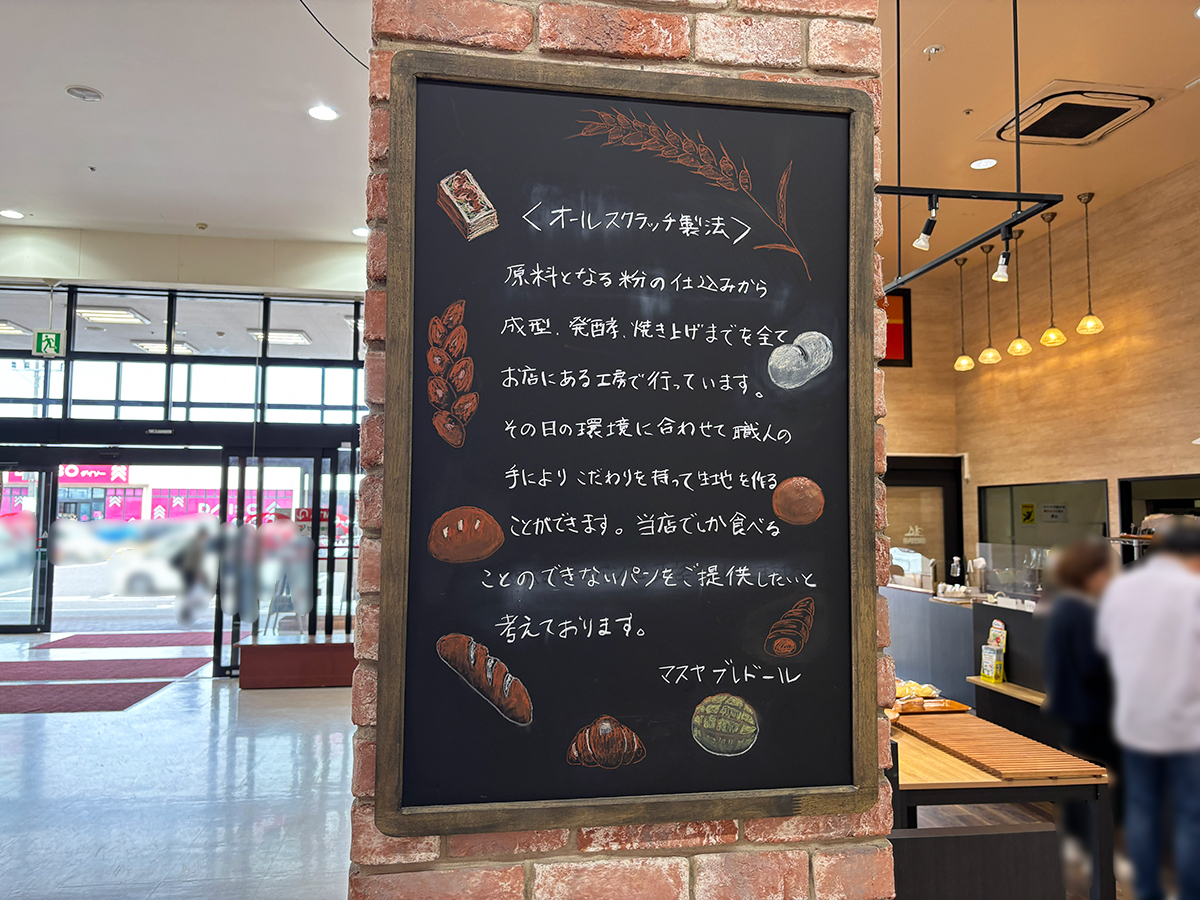 〈オールスクラッチ製法〉
原料となる粉の仕込みから
成型、発酵、焼き上げまでを全て
お店にある工房で行っています。
その日の環境に合わせて職人の
手によりこだわりを持って生地を作る
ことができます。当店でしか食べる
ことのできないパンをご提供したいと
考えております。
マスヤブレドール
ダイソー